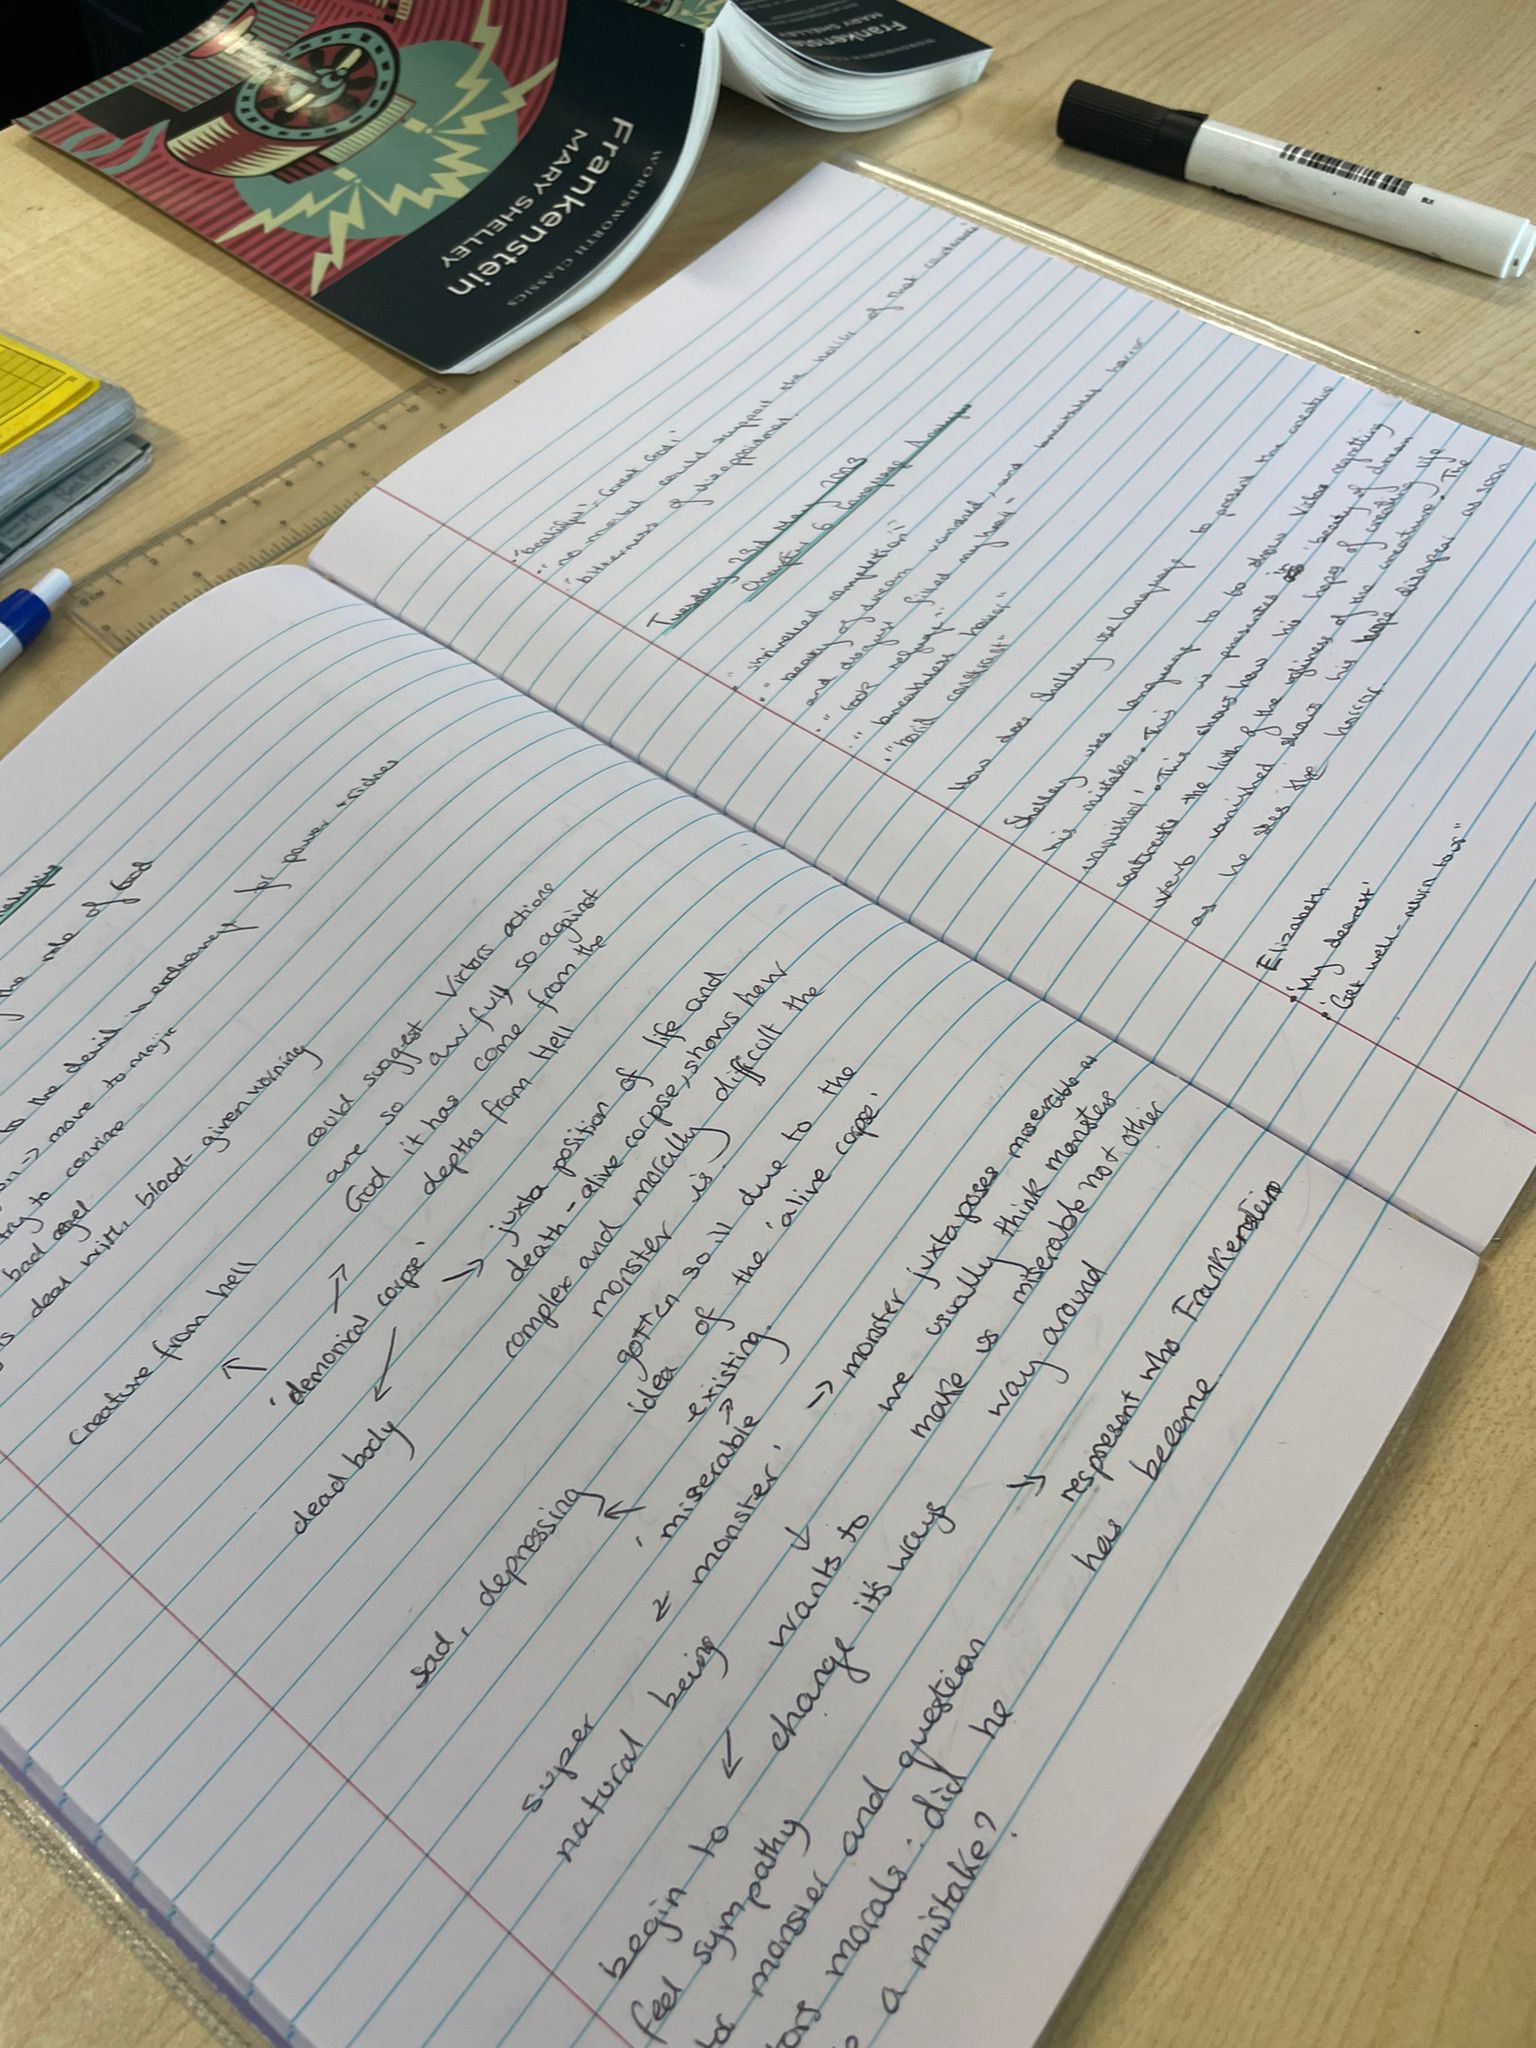 Frankenstein
MARY SHELLEY
WORDSWORTH CLASSICS
Frankenstein
MARY SHELLEY
BLK
the role of God
to the devil in exchange for power + riches
-> move to magic
try to convince
bad angel
deal with blood - given warning
creature from hell
could suggest Victors actions
are so awful, so against
God it has come from the
depths from Hell
'demonical corpse'
dead body
juxta position of life and
death - alive corpse, shows how
complex and morally difficult the
monster is
gotten so ill due to the
idea of the 'alive corpse'
existing.
sad, depressing
'miserable
monster'
super
natural being
-> monster juxtaposes miserable as
we usually think monsters
make us miserable not other
way around
wants to
change it's ways
begin to
feel sympathy
for monster and question
morals: did he
a mistake?
respresent who Frankenstein
has become.
"beautiful" - Great God!"
"no mortal could support the
"bitterness of disappointment
Tuesday 23rd May 2023
Chapter 5 Language Analysis
"shrivelled complexion"
"beauty of dream vanished, and breathless horror
and disgust filled my heart"
"took refuge"
"breathless horror"
"horrid contrast"
How does Shelley use language to present the creature
Shelley uses language to show Victor regretting
his mistakes. This is presented in 'beauty of dream
vanished'. This shows how his hopes of creating life
contrasts the truth of the ugliness of the creature. The
verb vanished shows his hope disappear as soon
as he sees the horror
Elizabeth
• 'My dearest'
• "Get well - return to us"